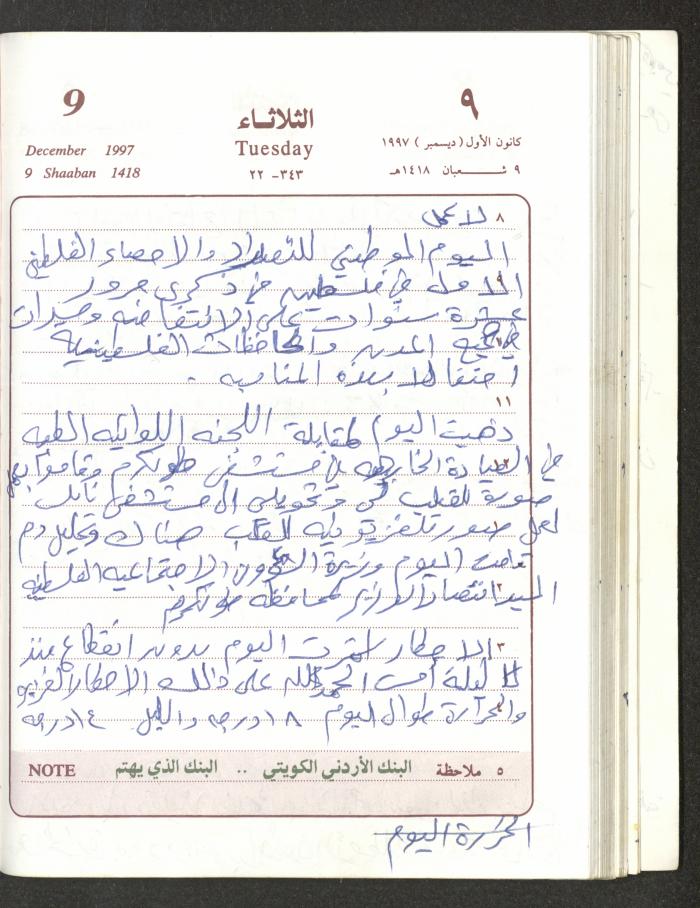 9
٩
December 1997
الثلاثاء
كانون الأول ( ديسمبر ) ١٩٩٧
Tuesday
9 Shaaban 1418
٣٤٣ - ٢٢
٩ شعبان ١٤١٨هـ
٨ لا عمل
اليوم الوطني للتعداد والاحصاء الفلسطيني
٩ الاول في فلسطين في ذكرى مرور
عشرة سنوات على الانتفاضه ومسيرات
١٠ في جميع المدن والمحافظات الفلسطينية
احتفالا بهذه المناسبه .
١١
ذهبت اليوم لمقابلة اللجنه اللوائيه الطبيه
١٢ في العيادة الخارجيه في مستشفى طولكرم وقاموا بعمل
صورة للقلب لي وتحويلي الى مستشفى نابلس
١ لعمل صور تلفزيونيه للقلب هناك وتحليل دم
قامت اليوم وزيرة الشؤون الاجتماعيه الفلسطينيه
٢ السيدة انتصار الوزير لمحافظة طولكرم
٣ الامطار استمرت اليوم بدون انقطاع منذ
ليلة أمس الحمد لله على ذالك الامطار الغزيره
٤ والحرارة طوال اليوم ١٨ درجه والليل ١٤ درجه
٥ ملاحظة البنك الأردني الكويتي .. البنك الذي يهتم NOTE
الحرارة اليوم